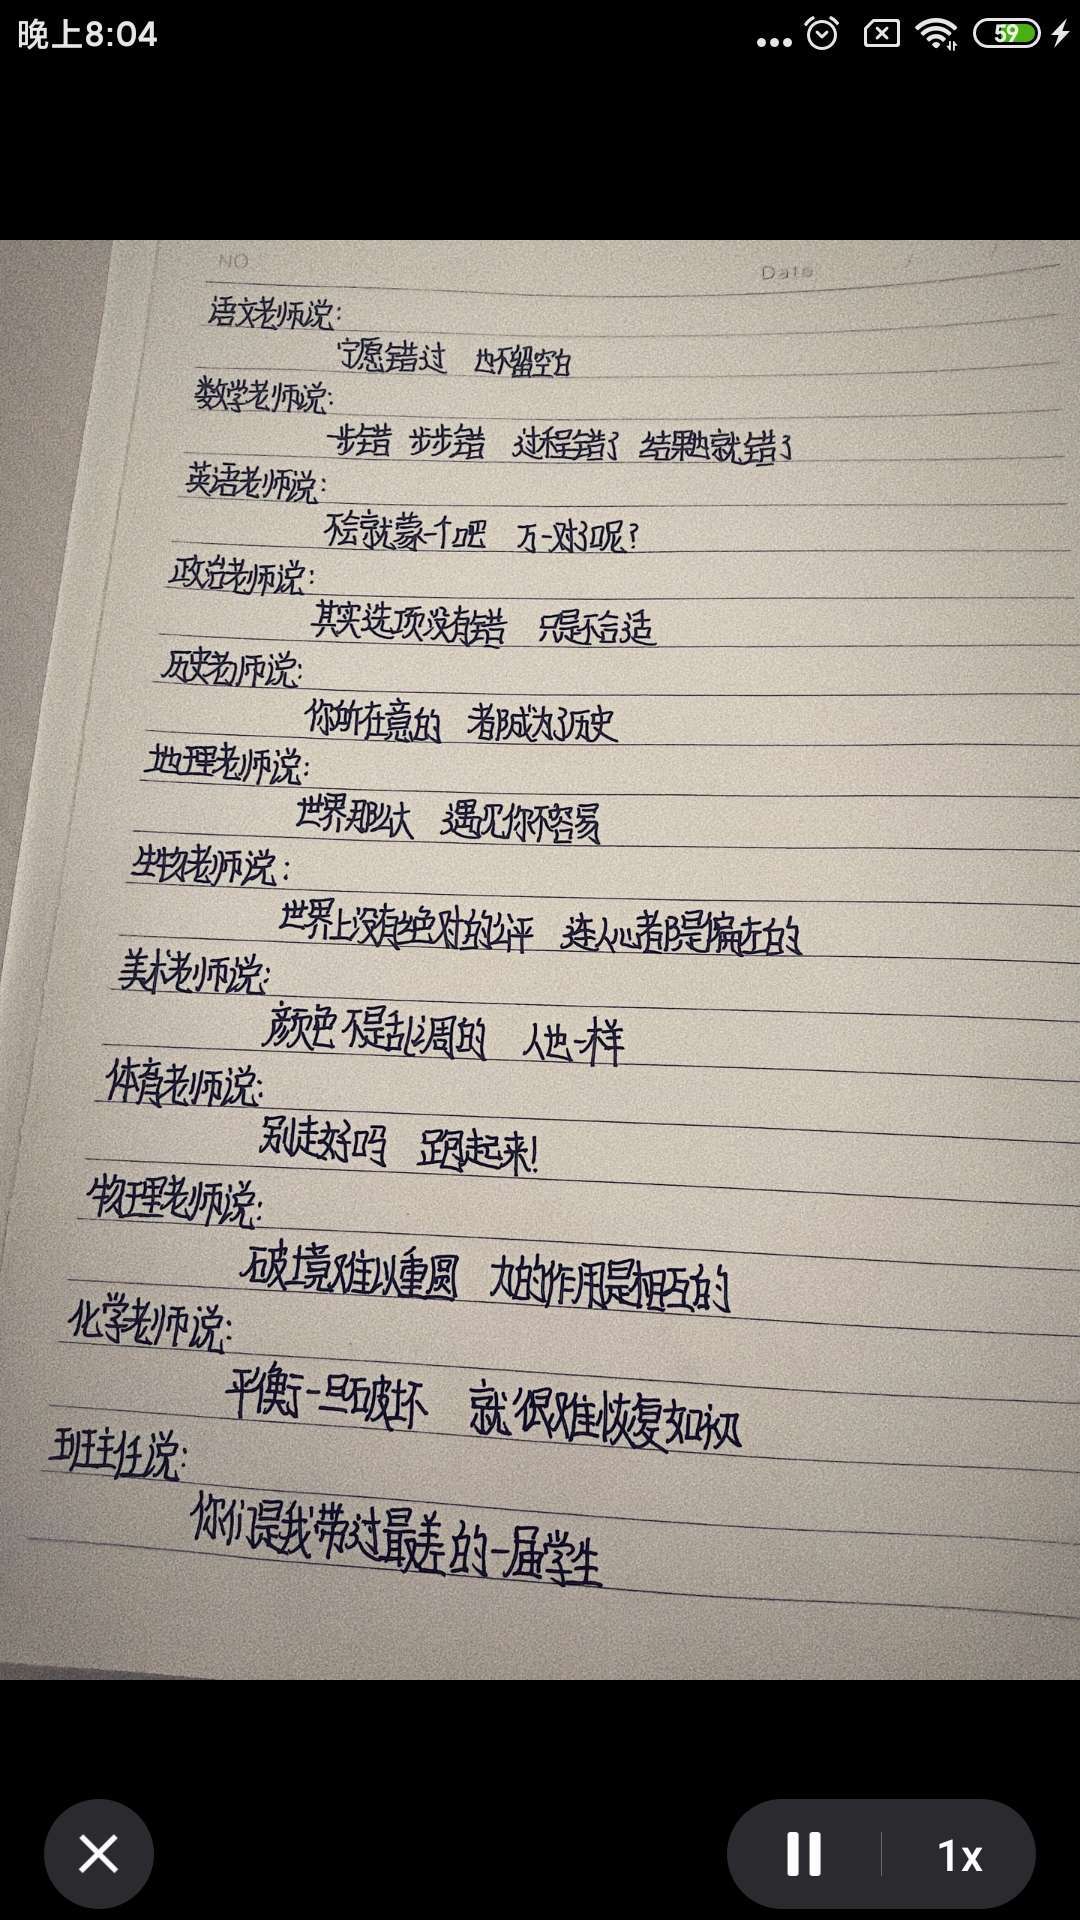 晚上8:04
59
NO
Date
语文老师说:
宁愿错过 也不留空白
数学老师说:
一步错 步步错 过程错了 结果就错了
英语老师说:
不会就蒙一个吧 万一对了呢?
政治老师说:
其实选项没有错 只是不合适
历史老师说:
你所在意的 都成为了历史
地理老师说:
世界那么大 遇见你不容易
生物老师说:
世界上没有绝对的公平 连人心都是偏左的
美术老师说:
颜色不是乱调的 人也一样
体育老师说:
别走好吗 跑起来!
物理老师说:
破境难以重圆 力的作用是相互的
化学老师说:
平衡一旦破坏 就很难恢复如初
班主任说:
你们是我带过最差的一届学生
1x